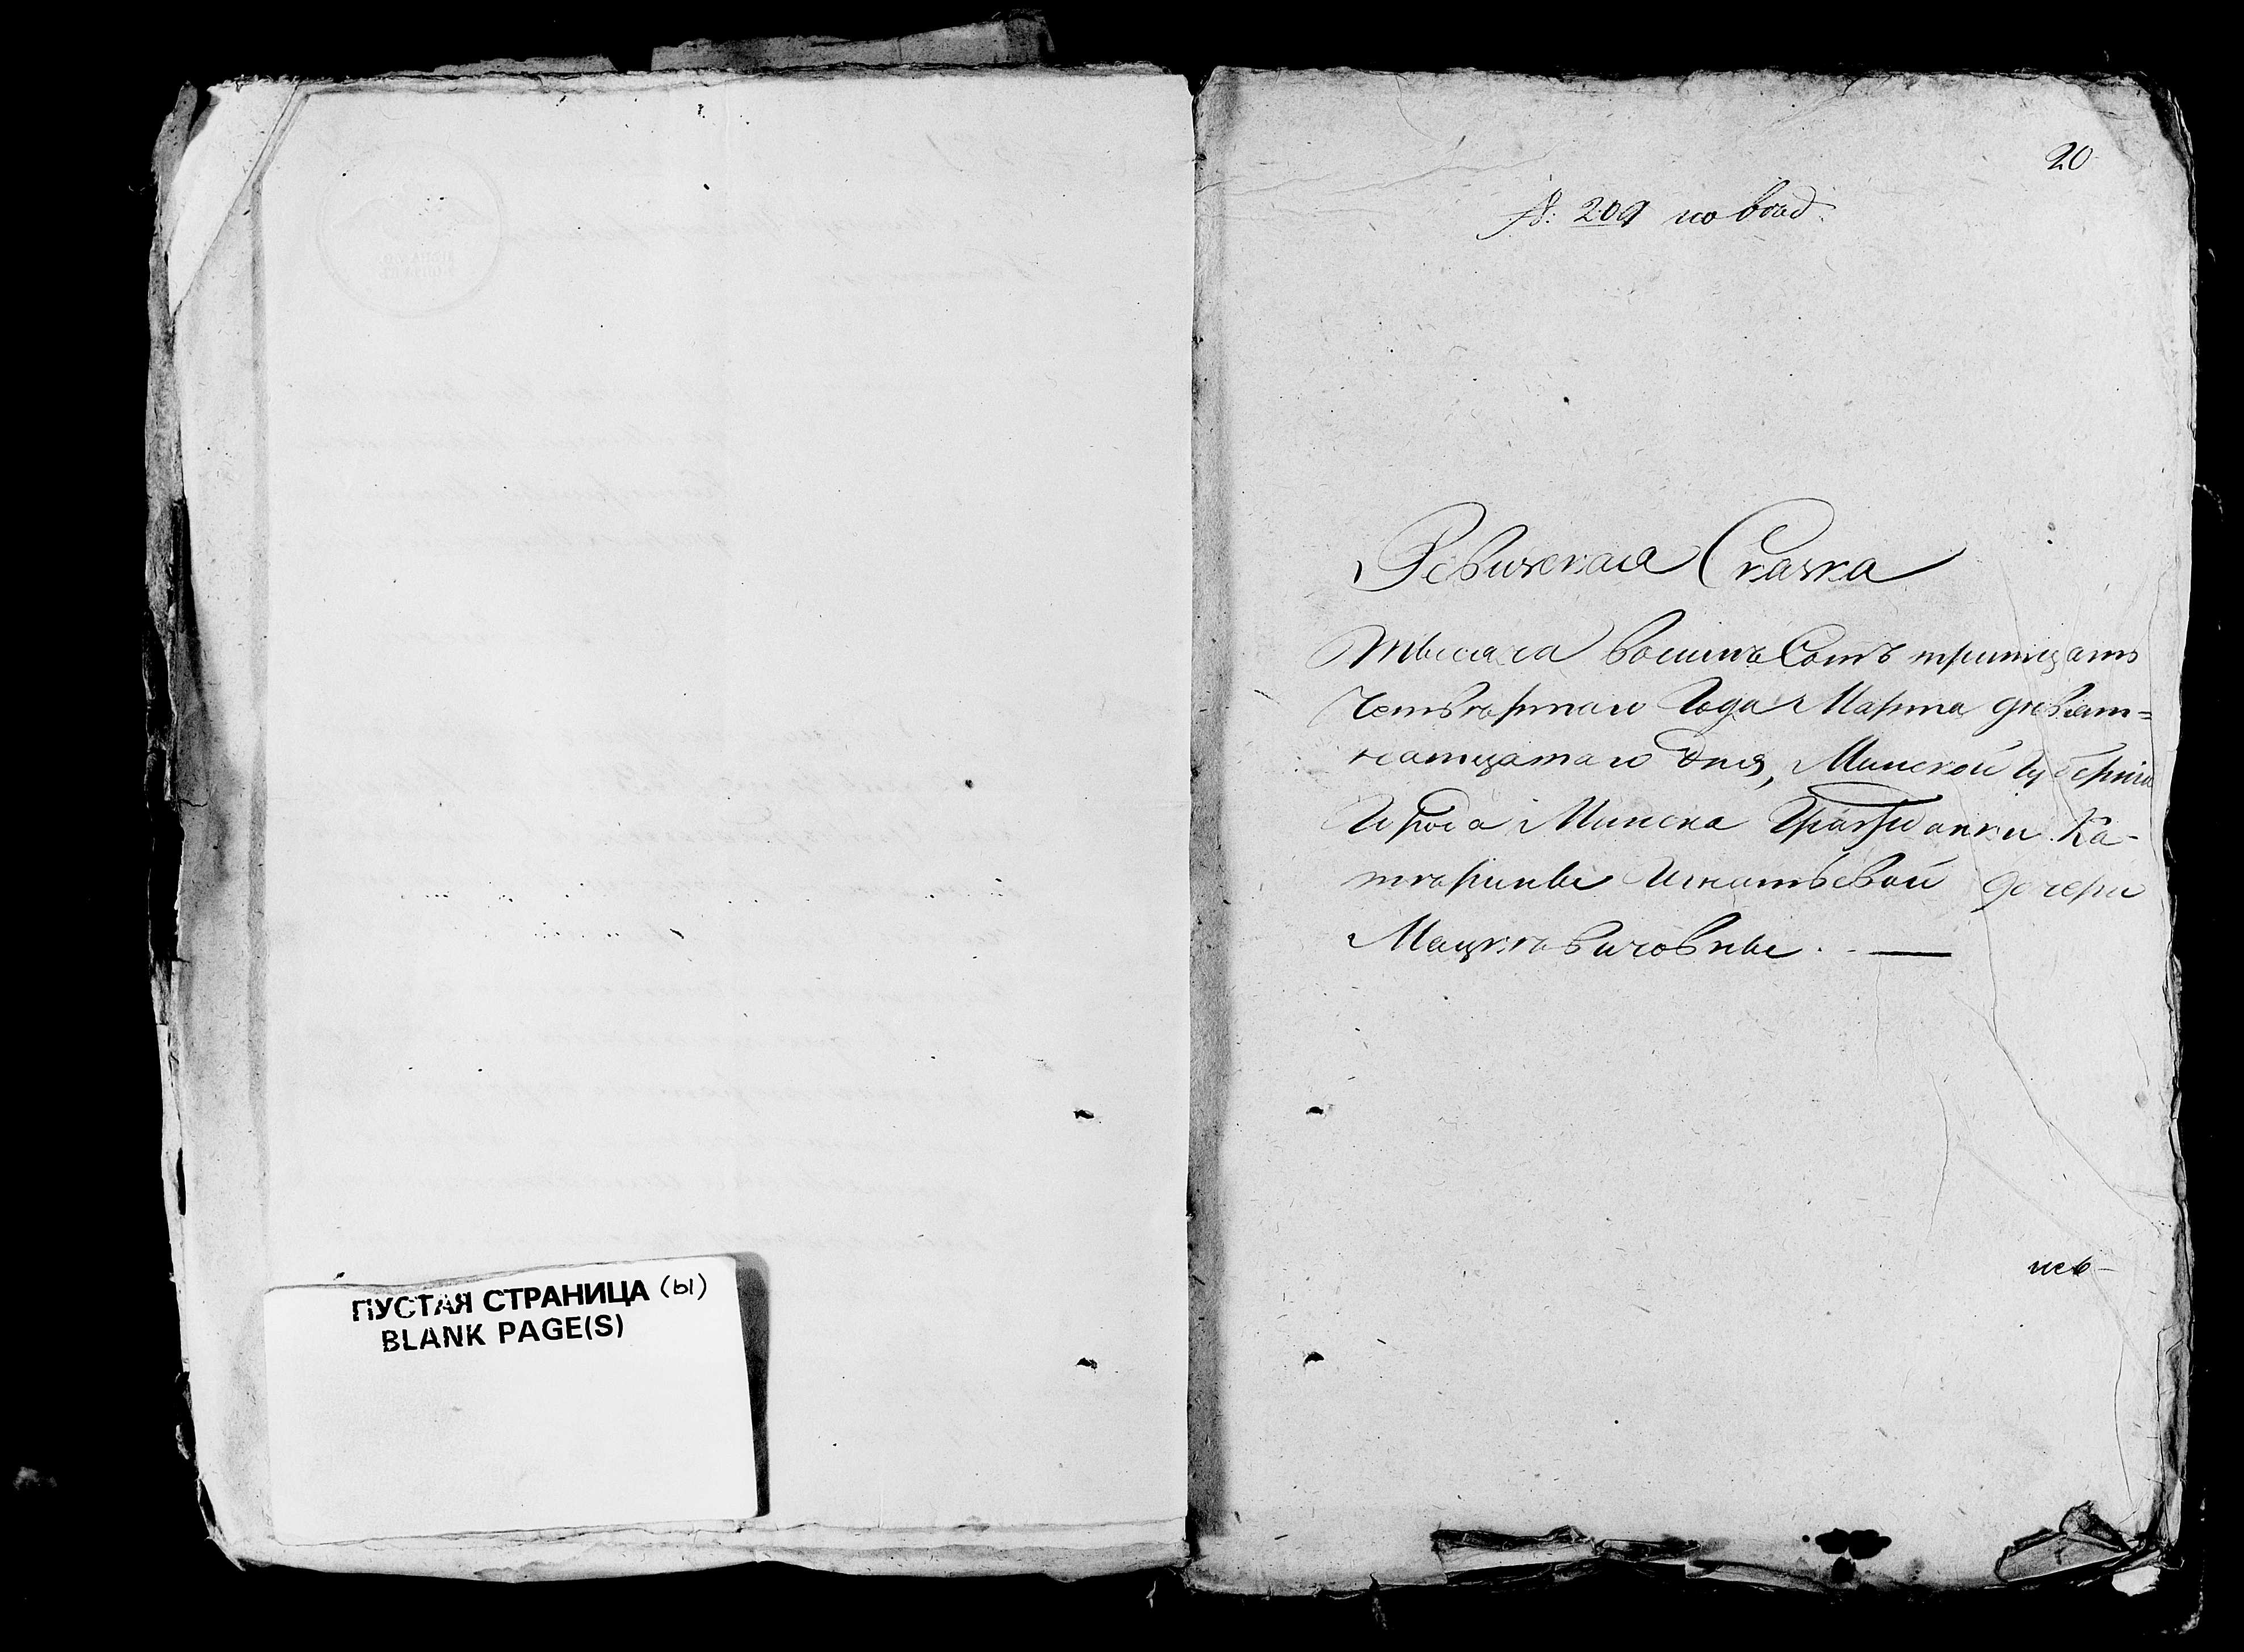 ПУСТАЯ СТРАНИЦА (ы)
BLANK PAGE(S)
20
№ 209
Ревизская Сказка
Тысяча восимь Сотъ тритцать
Четвертаго Года Марта девят=
натцатаго дня, Минской Губерніи
Города Минска Гражданки Ка-
терины Игнатьевой дочери
Мацкевичовны. —